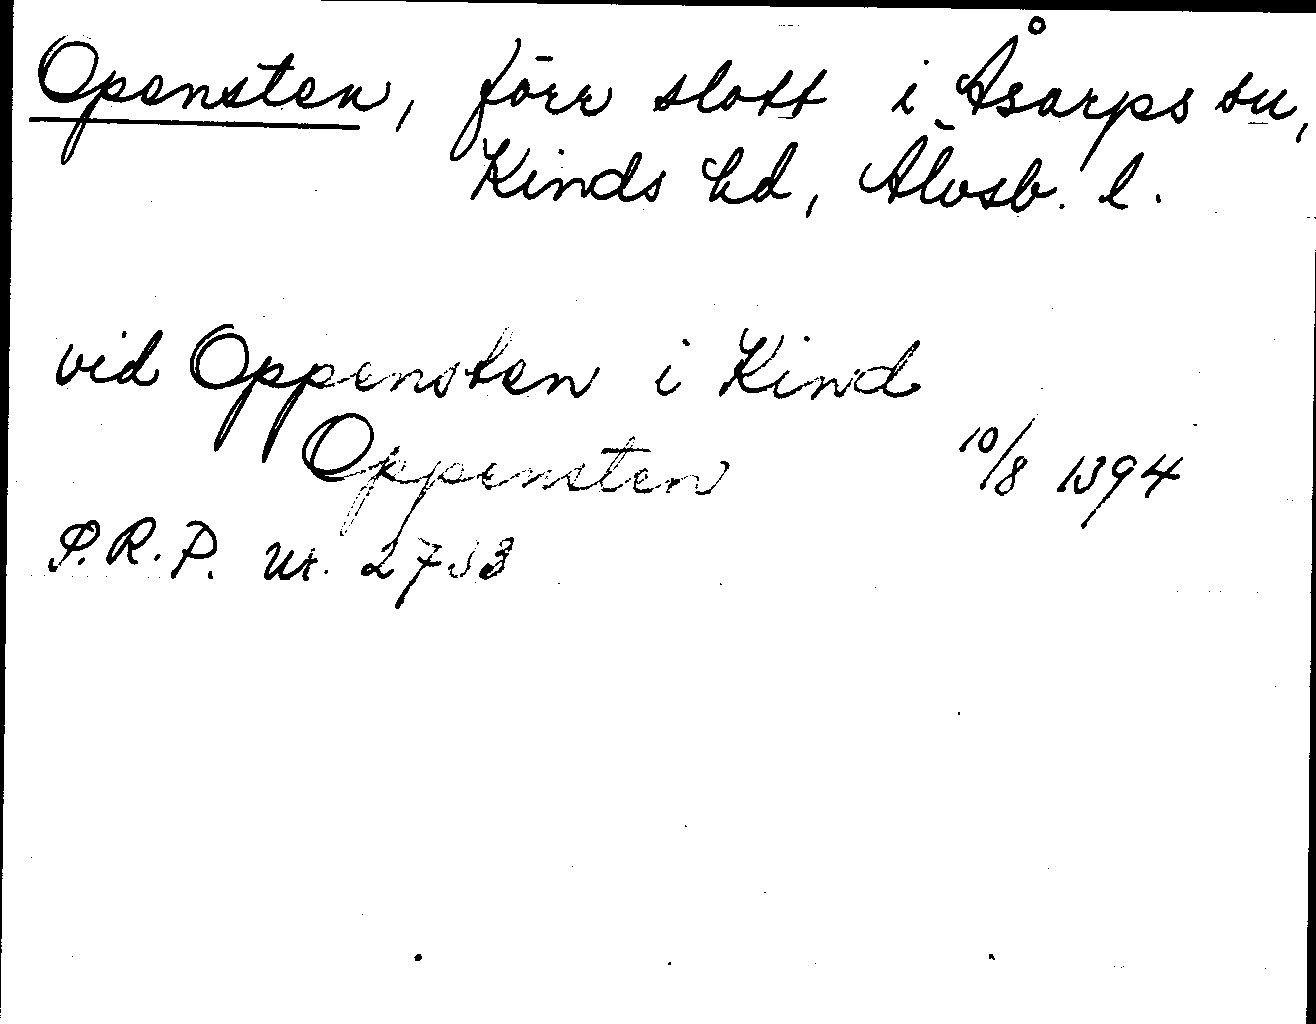 Opensten, förr slott i Åsarps sn,
Kinds hd, Älvsb. l.
vid Oppensten i Kind
Oppensten 10/8 1394
S.R.P. nr. 2733